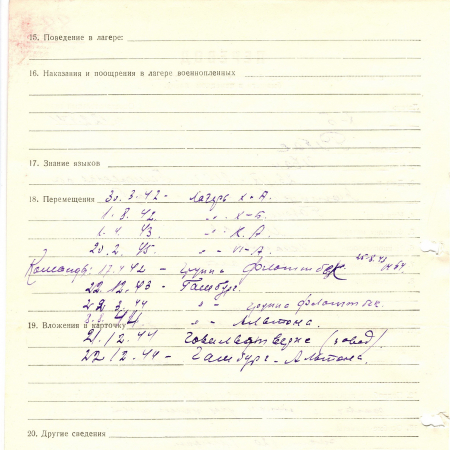 15. Поведение в лагере:
16. Наказания и поощрения в лагере военнопленных
17. Знание языков
18. Перемещения 30.3.42 - Лагерь X-А.
1.8.42. " X-Б.
1.4.43. " X.А.
20.2.45. " VI-А.
Команды: 17.4.42 - группа Флоттбек.
22.12.43 - Гамбург.
22.3.44 " - группа Флоттбек.
" Альтона.
19. Вложения в карточку
21.12.44 (завод).
22.12.44 - Гамбург-Альтона.
20. Другие сведения